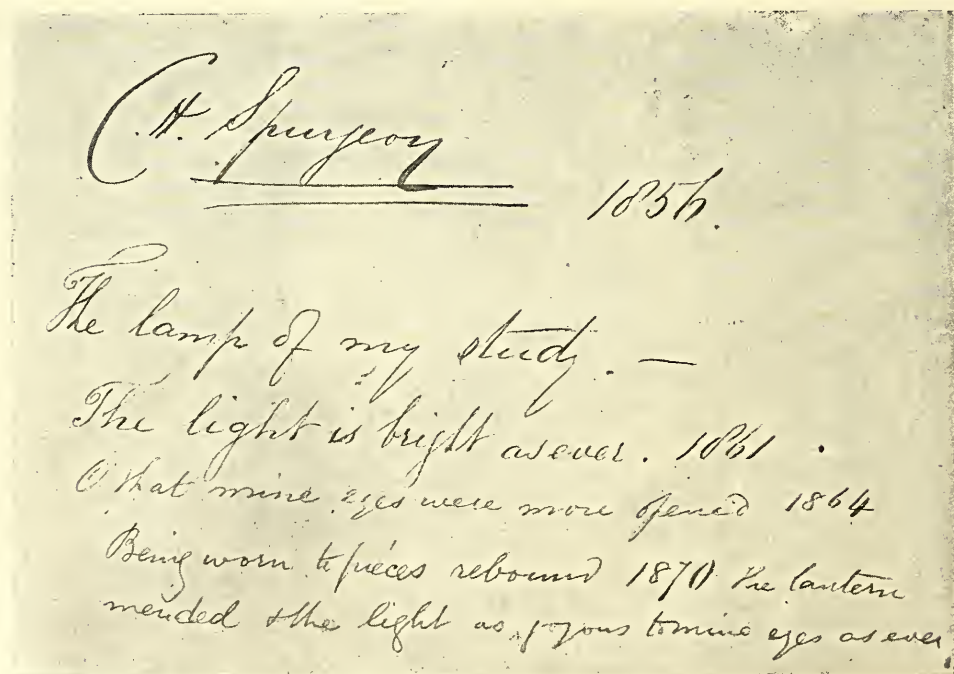 C. H. Spurgeon
1856.
The lamp of my study. —
The light is bright as ever. 1861.
O that mine eyes were more opened 1864
Being worn to pieces rebound 1870 The lantern
mended & the light as joyous to mine eyes as ever